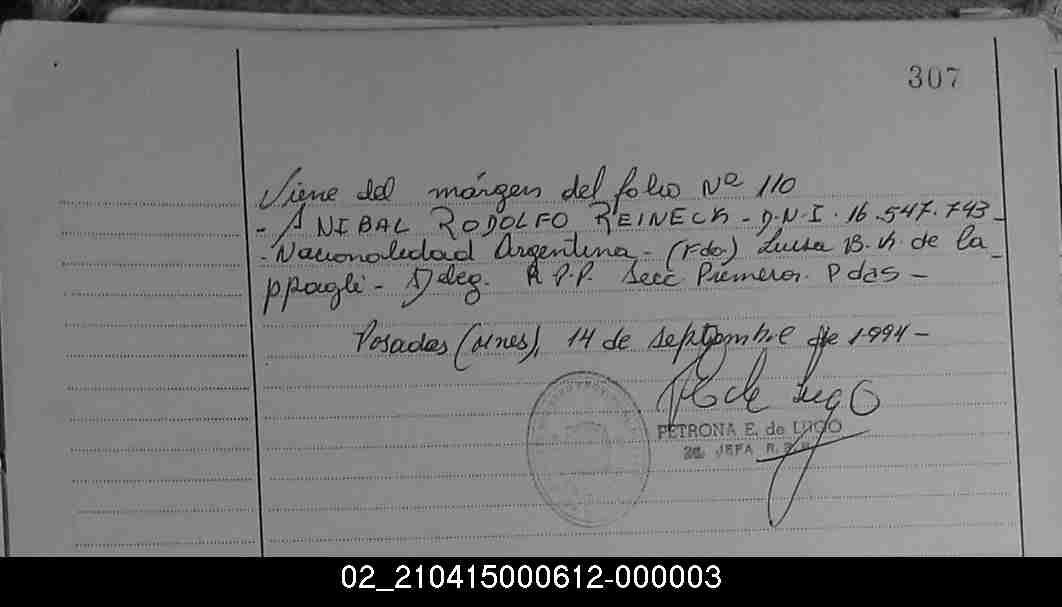 307
Viene del márgen del folio Nº 110
- ANIBAL RODOLFO REINECK - D.N.I. 16.547.743 -
- Nacionalidad Argentina - (Fdo) Luisa B. K. de la
ppagli - Deleg. R.P.P. Secc Primera. Pdas -
Posadas (Mnes), 14 de septiembre de 1994 -
de Lugo
PETRONA E. de LUGO
JEFA R.
02_210415000612-000003